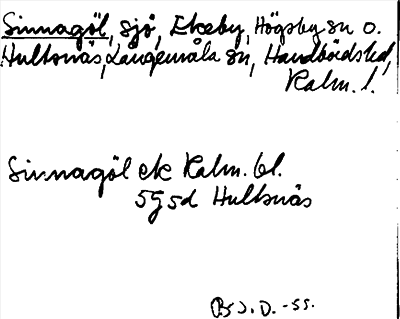 Sinnagöl, sjö, Ekeby, Högsby sn o.
Hultsnäs, Långemåla sn, Handbörds hd,
Kalm. l.
Sinnagöl ek Kalm. bl.
5g5d Hultsnäs
BrJ.D. -55.